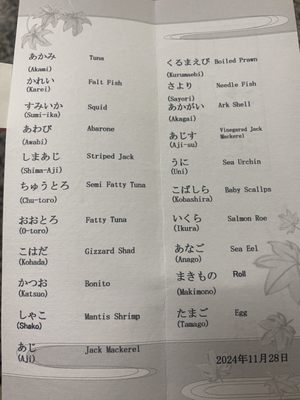 あかみ Tuna
(Akami)
かれい Falt Fish
(Karei)
すみいか Squid
(Sumi-ika)
あわび Abarone
(Awabi)
しまあじ Striped Jack
(Shima-Aji)
ちゅうとろ Semi Fatty Tuna
(Chu-toro)
おおとろ Fatty Tuna
(O-toro)
こはだ Gizzard Shad
(Kohada)
かつお Bonito
(Katsuo)
しゃこ Mantis Shrimp
(Shako)
あじ Jack Mackerel
(Aji)
くるまえび Boiled Prawn
(Kurumaebi)
さより Needle Fish
(Sayori)
あかがい Ark Shell
(Akagai)
あじす Vinegared Jack
Mackerel
(Aji-su)
うに Sea Urchin
(Uni)
こばしら Baby Scallps
(Kobashira)
いくら Salmon Roe
(Ikura)
あなご Sea Eel
(Anago)
まきもの Roll
(Makimono)
たまご Egg
(Tamago)
2024年11月28日